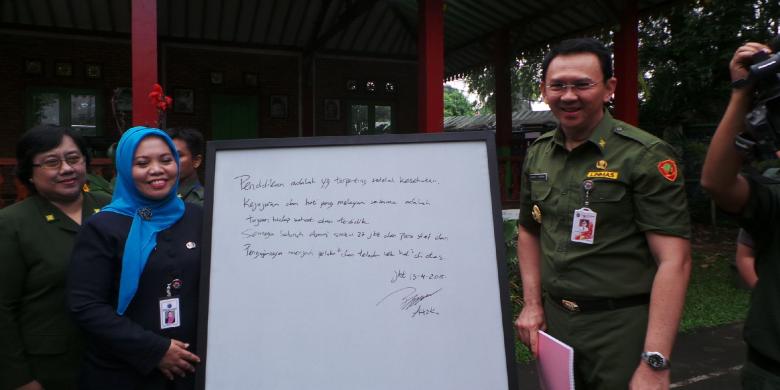 Pendidikan adalah yg terpenting setelah kesehatan.
Kejujuran dan hati yang melayani sesama adalah
tujuan hidup sehat dan terdidik.
Semoga seluruh alumni SMAN 27 jkt dan para staf dan
Pengajarnya menjadi pelaku dan teladan hal" di atas.
Jkt 13-4-2015.
LINMAS